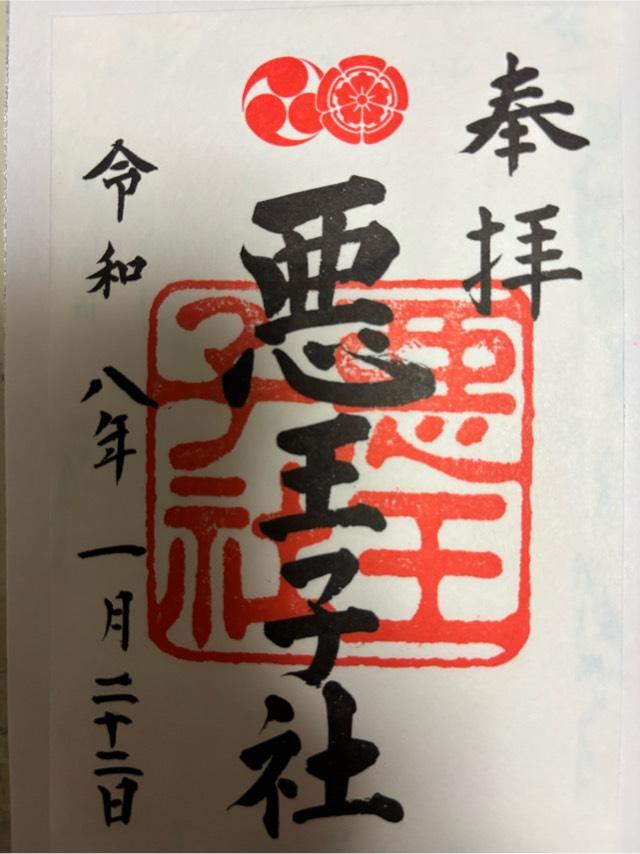 奉拝
悪王子社
悪王子社
令和八年一月二十二日